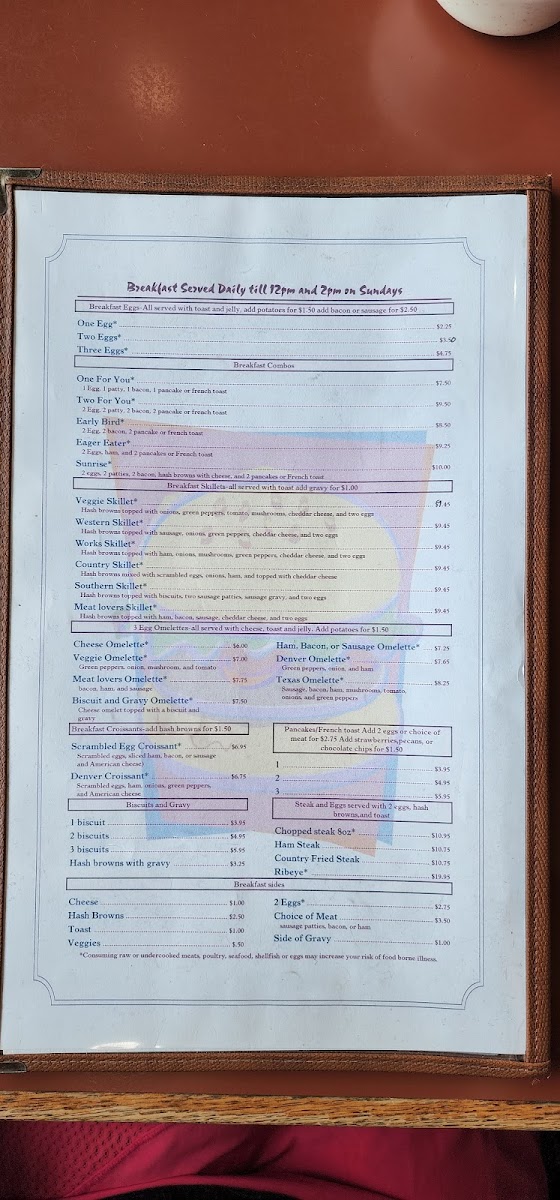 Breakfast Served Daily till 12pm and 2pm on Sundays
Breakfast Eggs-All served with toast and jelly, add potatoes for $1.50 add bacon or sausage for $2.50
One Egg* $2.25
Two Eggs* $3.50
Three Eggs* $4.75
Breakfast Combos
One For You* $7.50
1 Egg, 1 patty, 1 bacon, 1 pancake or french toast
Two For You* $9.50
2 Egg, 2 patty, 2 bacon, 2 pancake or french toast
Early Bird* $8.50
2 Egg, 2 bacon, 2 pancake or french toast
Eager Eater* $9.25
2 Eggs, ham, and 2 pancakes or French toast
Sunrise* $10.00
2 eggs, 2 patties, 2 bacon, hash browns with cheese, and 2 pancakes or French toast
Breakfast Skillets-all served with toast add gravy for $1.00
Veggie Skillet* $9.45
Hash browns topped with onions, green peppers, tomato, mushrooms, cheddar cheese, and two eggs
Western Skillet* $9.45
Hash browns topped with sausage, onions, green peppers, cheddar cheese and two eggs
Works Skillet* $9.45
Hash browns topped with ham, onions, mushrooms, green peppers, cheddar cheese, and two eggs
Country Skillet* $9.45
Hash browns mixed with scrambled eggs, onions, ham, and topped with cheddar cheese
Southern Skillet* $9.45
Hash browns topped with biscuits, two sausage patties, sausage gravy, and two eggs
Meat lovers Skillet* $9.45
Hash browns topped with ham, bacon, sausage, cheddar cheese, and two eggs
3 Egg Omelettes-all served with cheese, toast and jelly. Add potatoes for $1.50
Cheese Omelette* $6.00
Veggie Omelette* $7.00
Green peppers, onion, mushroom, and tomato
Meat lovers Omelette* $7.75
bacon, ham, and sausage
Biscuit and Gravy Omelette* $7.50
Cheese omelet topped with a biscuit and
gravy
Ham, Bacon, or Sausage Omelette* $7.25
Denver Omelette* $7.65
Green peppers, onion, and ham
Texas Omelette* $8.25
Sausage, bacon, ham, mushrooms, tomato,
onions, and green peppers
Breakfast Croissants-add hash browns for $1.50
Scrambled Egg Croissant* $6.95
Scrambled eggs, sliced ham, bacon, or sausage
and American cheese)
Denver Croissant* $6.75
Scrambled eggs, ham, onions, green peppers,
and American cheese
Pancakes/French toast Add 2 eggs or choice of
meat for $2.75 Add strawberries,pecans, or
chocolate chips for $1.50
1 $3.95
2 $4.95
3 $5.95
Biscuits and Gravy
1 biscuit $3.95
2 biscuits $4.95
3 biscuits $5.95
Hash browns with gravy $3.25
Steak and Eggs served with 2 eggs, hash
browns,and toast
Chopped steak 8oz* $10.95
Ham Steak $10.75
Country Fried Steak $10.75
Ribeye* $19.95
Breakfast sides
Cheese $1.00
Hash Browns $2.50
Toast $1.00
Veggies $.50
2 Eggs* $2.75
Choice of Meat $3.50
sausage patties, bacon, or ham
Side of Gravy $1.00
*Consuming raw or undercooked meats, poultry, seafood, shellfish or eggs may increase your risk of food borne illness.